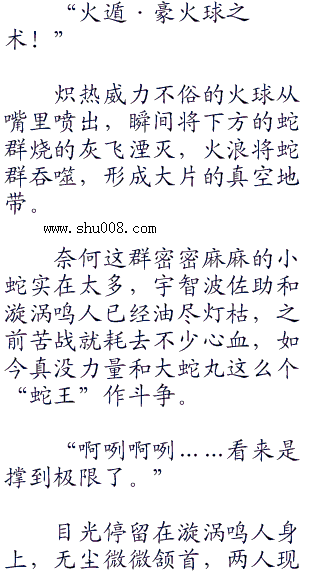 “火遁·豪火球之
术！”
炽热威力不俗的火球从
嘴里喷出，瞬间将下方的蛇
群烧的灰飞湮灭，火浪将蛇
群吞噬，形成大片的真空地
带。
www.shu008.com
奈何这群密密麻麻的小
蛇实在太多，宇智波佐助和
漩涡鸣人已经油尽灯枯，之
前苦战就耗去不少心血，如
今真没力量和大蛇丸这么个
“蛇王”作斗争。
“啊咧啊咧……看来是
撑到极限了。”
目光停留在漩涡鸣人身
上，无尘微微颔首，两人现